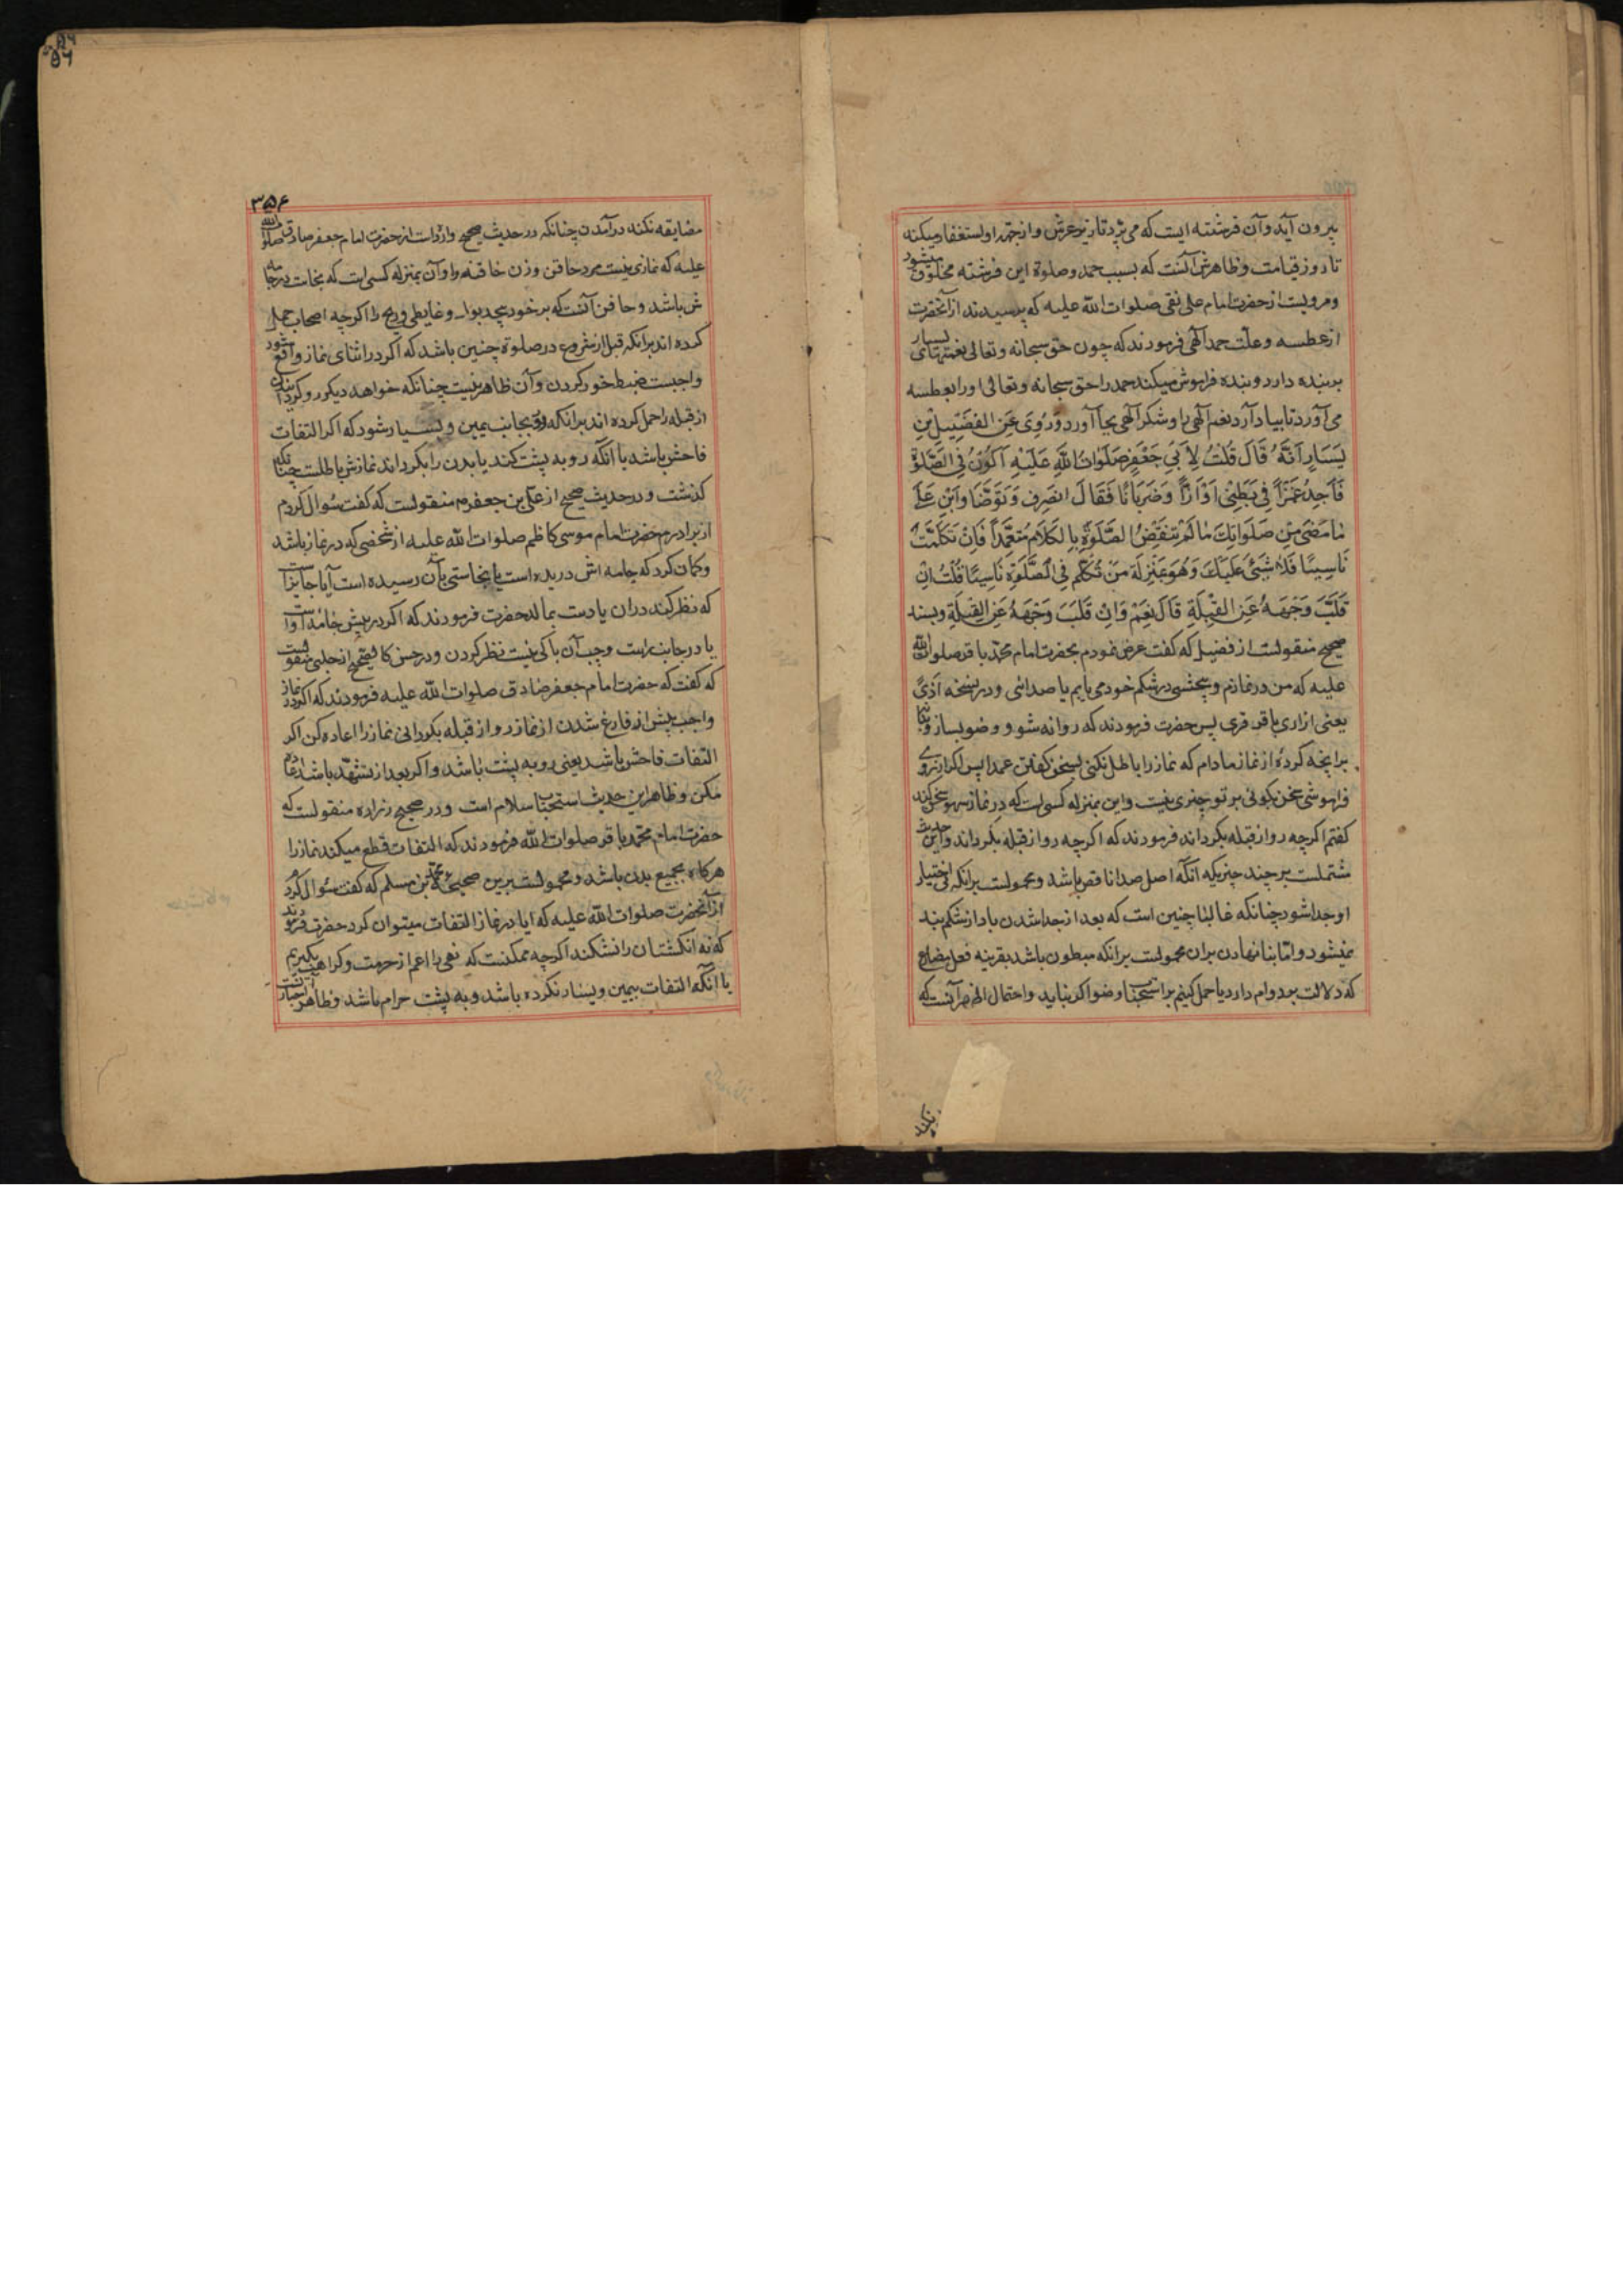 بیرون آید وآن فرشته ایست که می پرد تا زیر عرش و از جهة او استغفار میکند
تا روز قیامت وظاهرش آنست که بسبب حمد وصلوة این فرشته مخلوق میشود
ومرویست از حضرت امام علی نقی صلوات الله علیه که پرسیدند از آنحضرت
از عطسه وعلت حمد الهی فرمودند که چون حق سبحانه وتعالی نعمتهای بسیار
بر بنده دارد وبنده فراموش میکند حمد را حق سبحانه وتعالی اورا بعطسه
می آورد تا بیاد آرد نعم الهی را وشکر الهی بجا آورد وَرُوِیَ عَنِ الفُضَیلِ بنِ
یَسَارٍ اَنَّهُ قَالَ قُلتُ لِاَبی جَعفَرٍ صَلَوَاتُ اللّهِ عَلَیهِ اَکُونُ فِی الصَّلوةِ
فَاَجِدُ غَمزًا فِی بَطنِی اَوْ اَزًّا وَضَرَبَانًا فَقَالَ انصَرِف وَتَوَضَّا وَابنِ عَلَی
مَا مَضَی مِن صَلَوَاتِکَ مَا لَم تَنقُضِ الصَّلَوةَ بِالکَلَامِ مُتَعَمِّدًا فَاِن تَکَلَّمتَ
نَاسِیًا فَلَا شَیئَ عَلَیکَ وَهُوَ بِمَنزِلَةِ مَن تَکَلَّمَ فِی الصَّلَوةِ نَاسِیًا قُلتُ اِن
قَلَّبَ وَجهَهُ عَنِ القِبلَةِ قَالَ نَعَم وَاِن قَلَبَ وَجهَهُ عَنِ القِبلَةِ وبسند
صحیح منقولست از فضیل که گفت عرض نمودم بحضرت امام محمد باقر صلوات الله
علیه که من در نمازم وپیچشی در شکم خود می یابم یا صدائی ودر نسخه اَذًی
یعنی ازاری یا قرقری پس حضرت فرمودند که روانه شو ووضو بساز وبنا
بر انچه کردهٔ از نماز مادام که نماز را باطل نکنی بسخن گفتن عمدا پس اگر از روی
فراموشی سخن بگوئی بر تو چیزی نیست واین بمنزله کسی است که در نماز سهو سخن کند
گفتم اگرچه رو از قبله بگرداند فرمودند که اگرچه رو از قبله بگرداند واین حدیث
مشتملست بر چند چیز یکه آنکه اصل صدا ناقض باشد ومحمولست برانکه بی اختیار
او جدا شود چنانکه غالبا چنین است که بعد از جدا شدن باد از شکم بند
نمیشود واما بنا نهادن بران محمولست برانکه مبطون باشد بقرینه فعل مضارع
که دلالت بر دوام دارد یا حمل کنیم بر استحباب وضو اگر نیاید واحتمال اظهر آنست که
۳۵۶
مضایقه نکند در آمدن چنانکه در حدیث صحیح وارد است از حضرت امام جعفر صادق صلوات الله
علیه که نمازی نیست مرد حاقن وزن حاقنه را وآن بمنزله کسی است که نجاست در جامه
ش باشد وحاقن آنست که بر خود پیچد بول وغایط وریح را اگرچه اصحاب حمل
کرده اند برانکه قبل از شروع در صلوة چنین باشد که اگر در اثنای نماز واقع شود
واجبست ضبط خود کردن وآن ظاهر نیست چنانکه خواهد دیگر رو گردانیدن
از قبله را حمل کرده اند برانکه رو بجانب یمین ویسار شود که اگر التفات
فاحش باشد با آنکه رو به پشت کند یا بدن را بگرداند نمازش باطلست چنانکه
گذشت ودر حدیث صحیح از علی بن جعفر منقولست که گفت سؤال کردم
از برادرم حضرت امام موسی کاظم صلوات الله علیه از شخصی که در نماز باشد
وگمان کرد که جامه اش دریده است یا نجاستی بآن رسیده است آیا جایز است
که نظر کند دران یا دست بمالد حضرت فرمودند که اگر در پیش جامه است
یا در جانب راست وچپ آن باکی نیست نظر کردن ودر حسن کالصحیح از حلبی منقولست
که گفت که حضرت امام جعفر صادق صلوات الله علیه فرمودند که اگر در نماز
واجب پیش از فارغ شدن از نماز رو از قبله بگردانی نماز را اعاده کن اگر
التفات فاحش باشد یعنی رو به پشت باشد واگر بعد از تشهد باشد اعاده
مکن وظاهر این حدیث استحباب سلام است ودر صحیح زراره منقولست که
حضرت امام محمد باقر صلوات الله فرمودند که التفات قطع میکند نماز را
هرگاه بجمیع بدن باشد ومحمولست برین صحیح محمد بن مسلم که گفت سؤال کرد
از آنحضرت صلوات الله علیه که ایا در نماز التفات میتوان کرد حضرت فرمودند
که نه انگشتان را نشکند اگرچه ممکنست که نهی را اعم از حرمت وکراهت بگیریم
یا آنکه التفات بیمین ویسار نکرده باشد وبه پشت حرام باشد وظاهر